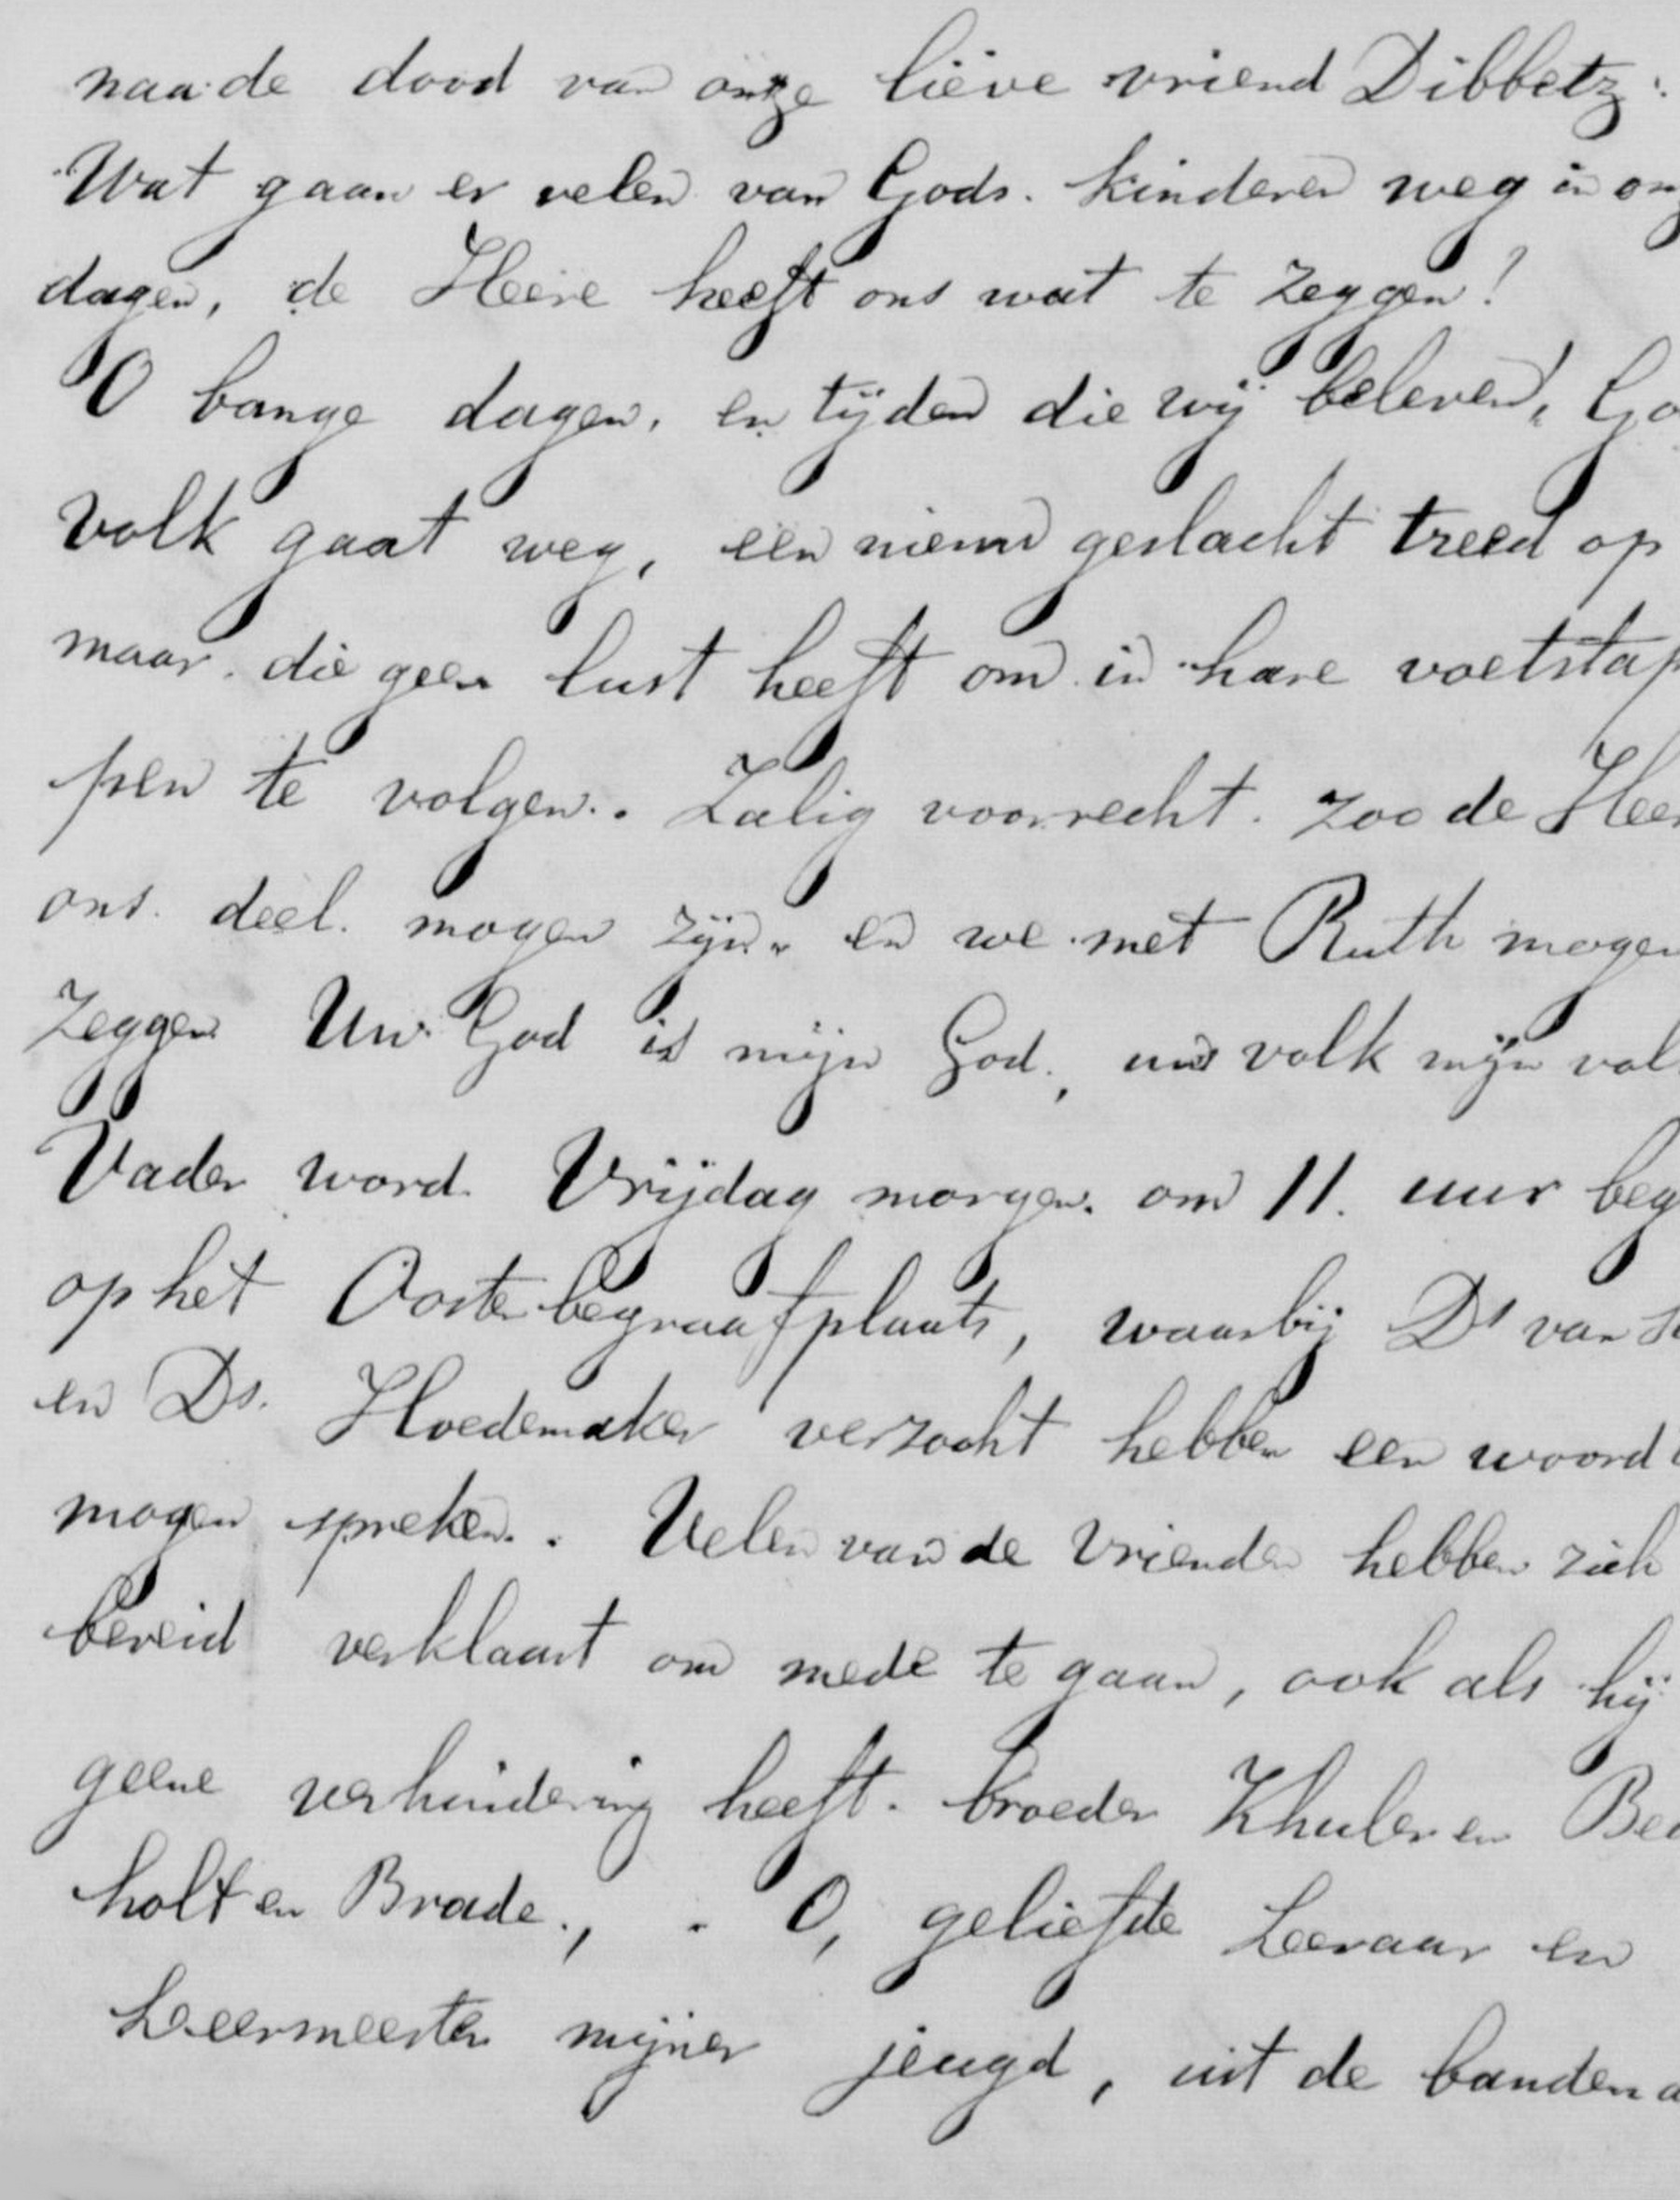 naa de dood van onze lieve vriend Dibbetz.
Wat gaan er velen van Gods. kinderen weg in
dagen, de Heere heeft ons wat te zeggen!
O bange dagen, en tijden die wij beleven!,
volk gaat weg, een nieuw geslacht treed op
maar. die geen lust heeft om in hare voetstap
pen te volgen.. Zalig voorrecht. zoo de Heer
ons. deel. mogen zijn. en we met Ruth mogen
zeggen Uw God is mijn God, uw volk mijn vol
Vader word. Vrijdag morgen. om 11. uur beg
op het Ooster begraafplaats, waarbij Ds van
en Ds. Hoedemaker verzocht hebben een woord
mogen spreken.. Velen van de vrienden hebben zich
bereid verklaart om mede te gaan, ook als hij
geene verhindering heeft. broeder Khuler en Be
holt en Brade., . O, geliefde Leeraar en
Leermeester mijner jeugd, uit de banden